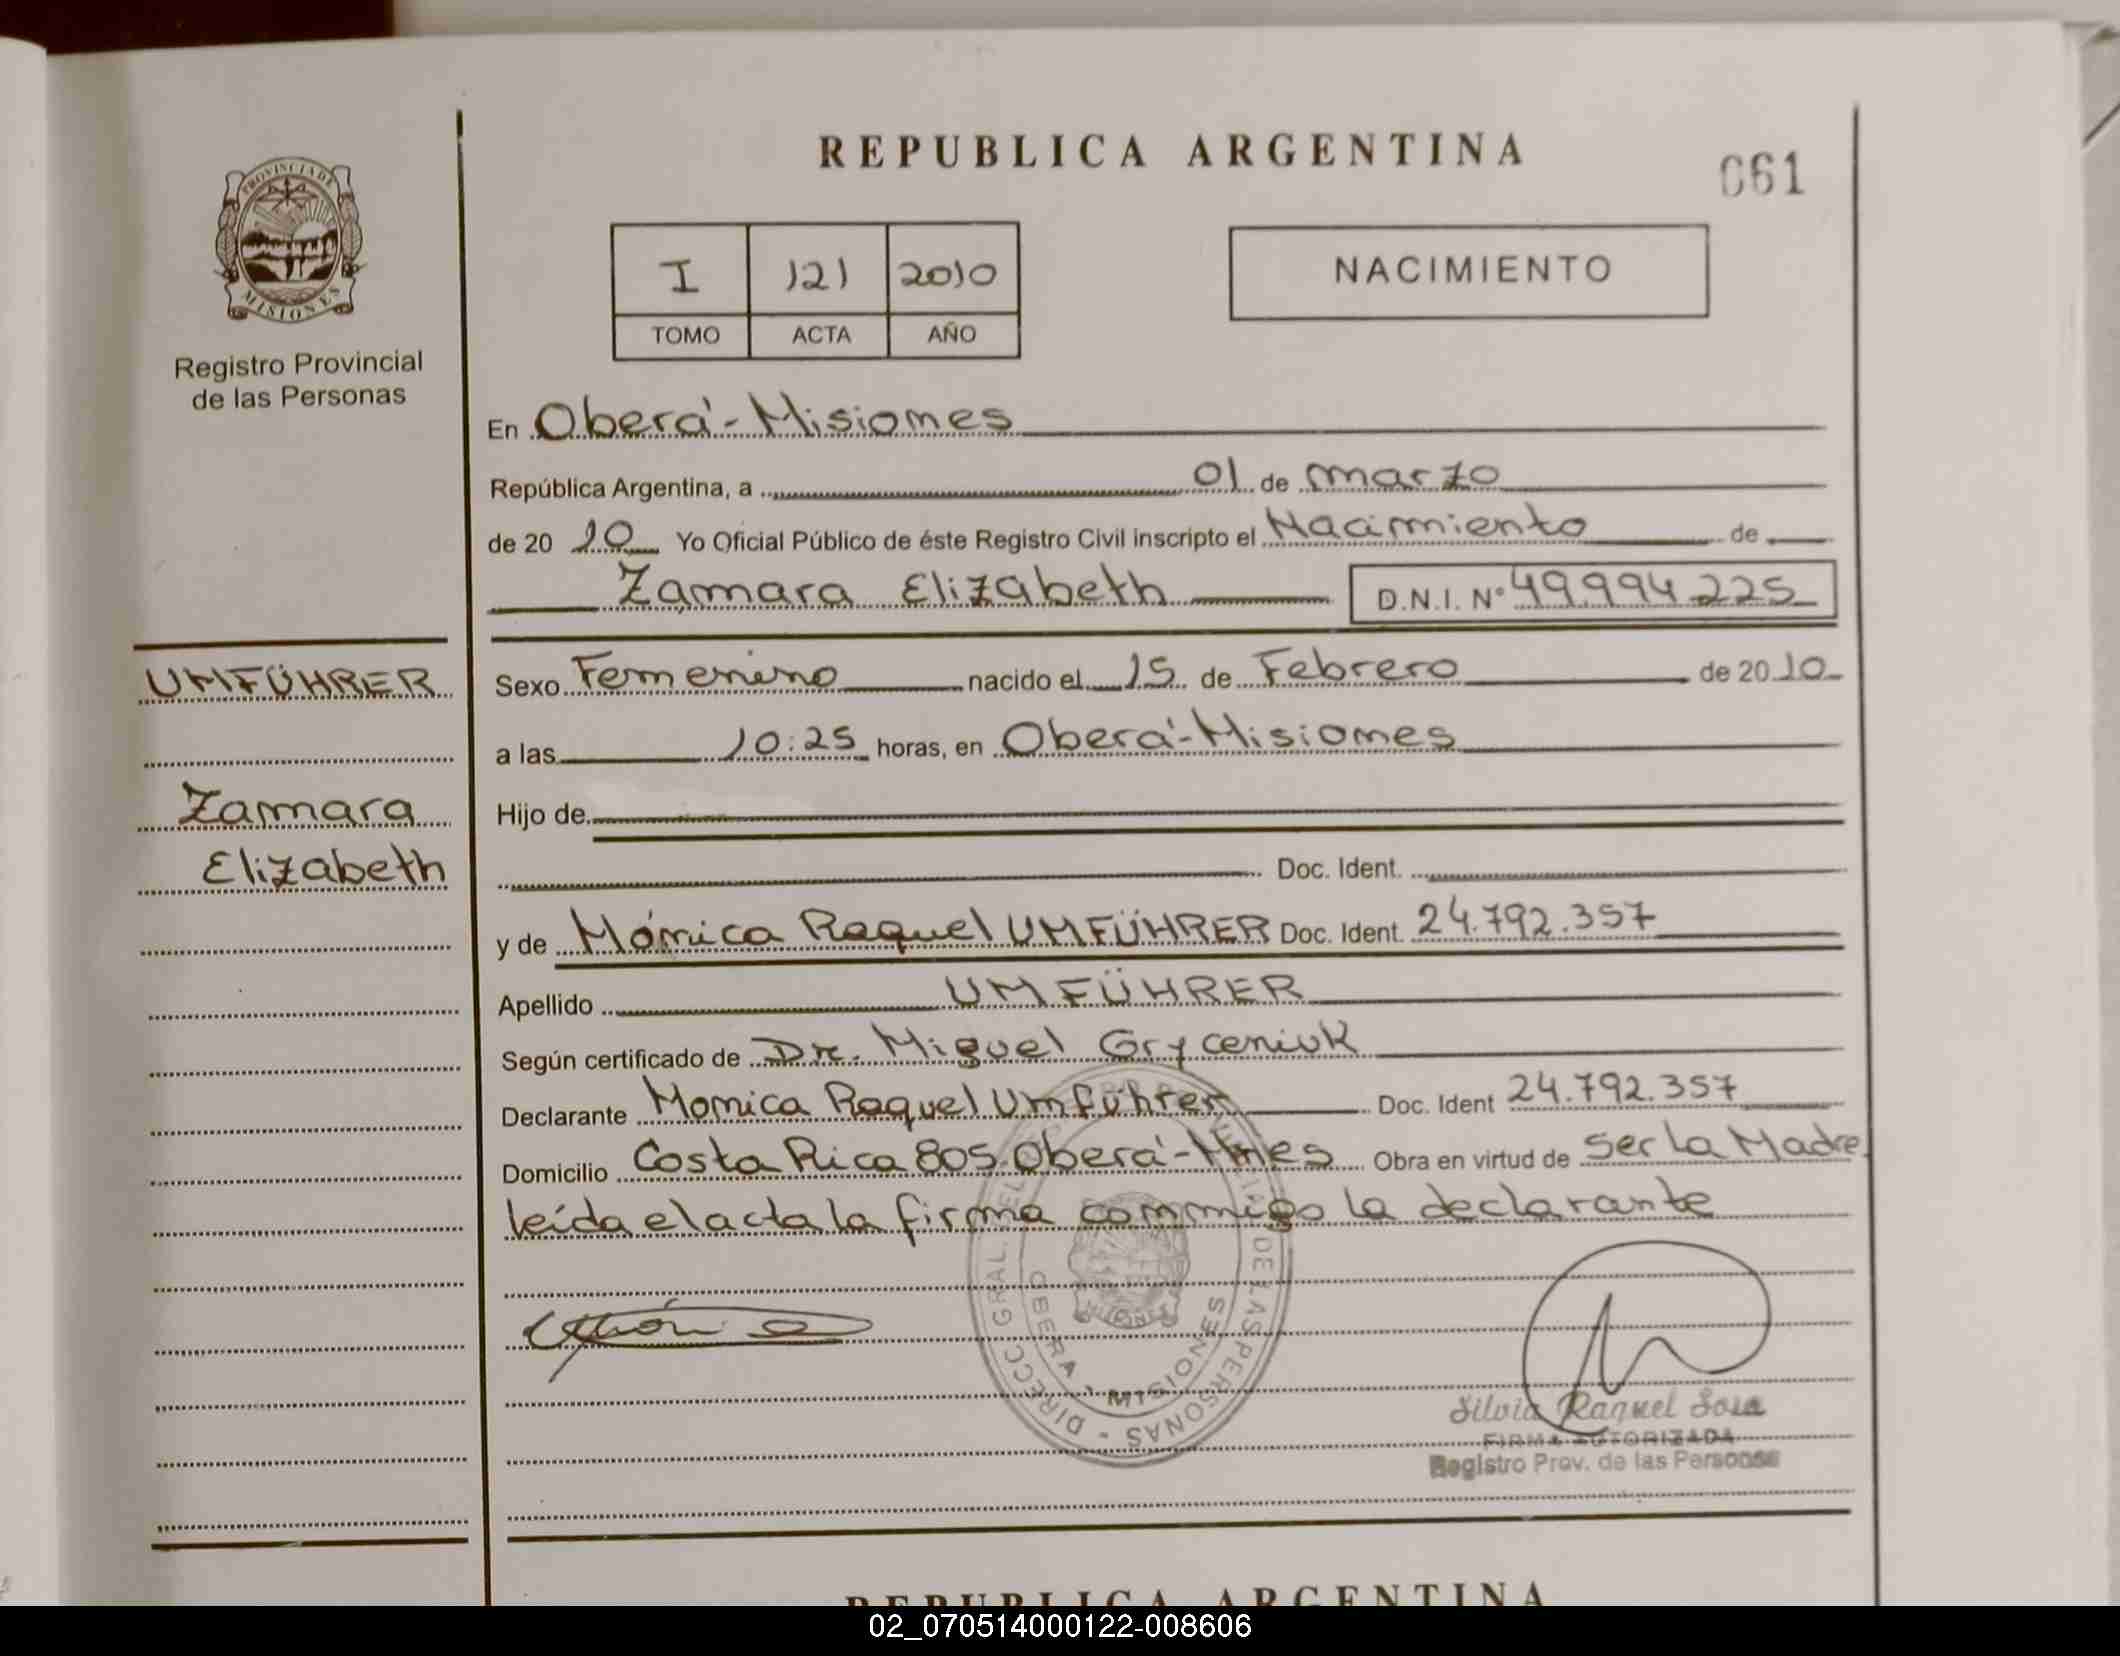 REPUBLICA ARGENTINA
061
PROVINCIA DE
MISIONES
Registro Provincial
de las Personas
I 121 2010
TOMO ACTA AÑO
NACIMIENTO
En Oberá-Misiones
República Argentina, a 01 de marzo
de 20 10 Yo Oficial Público de éste Registro Civil inscripto el Nacimiento de
Zamara Elizabeth D.N.I. N° 49.994.225
UMFÜHRER
Zamara
Elizabeth
Sexo Femenino nacido el 15 de Febrero de 2010
a las 10:25 horas, en Oberá-Misiones
Hijo de
Doc. Ident.
y de Mónica Raquel UMFÜHRER Doc. Ident. 24.792.357
Apellido UMFÜHRER
Según certificado de Dr. Miguel Gryceniuk
Declarante Monica Raquel Umführer Doc. Ident 24.792.357
Domicilio Costa Rica 805-Oberá-Mnes Obra en virtud de Ser La Madre
leída el acta la firma conmigo la declarante
DIRECC. GRAL. DEL REG. PROVINCIAL DE LAS PERSONAS -
OBERA - MISIONES
MISIONES
Silvia Raquel Sosa
FIRMA AUTORIZADA
Registro Prov. de las Personas
REPUBLICA ARGENTINA
02_070514000122-008606